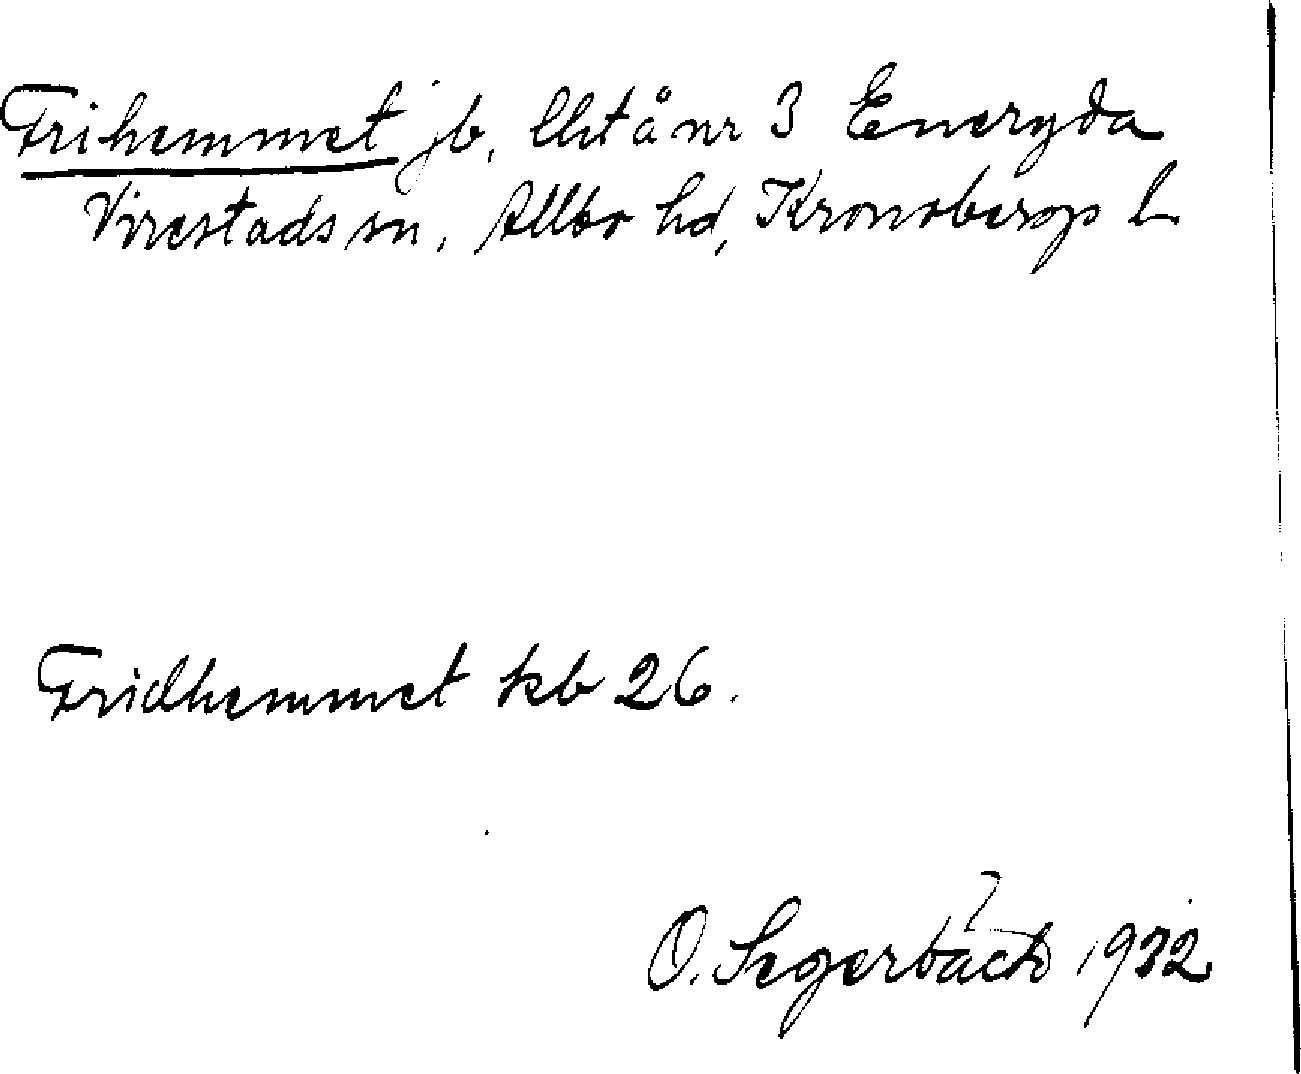 Frihemmet jb, Uktå nr 3 Eneryda
Virestads sn, Allbo hd, Kronobergs l
Fridhemmet kb 26.
O. Segerbäck 1932